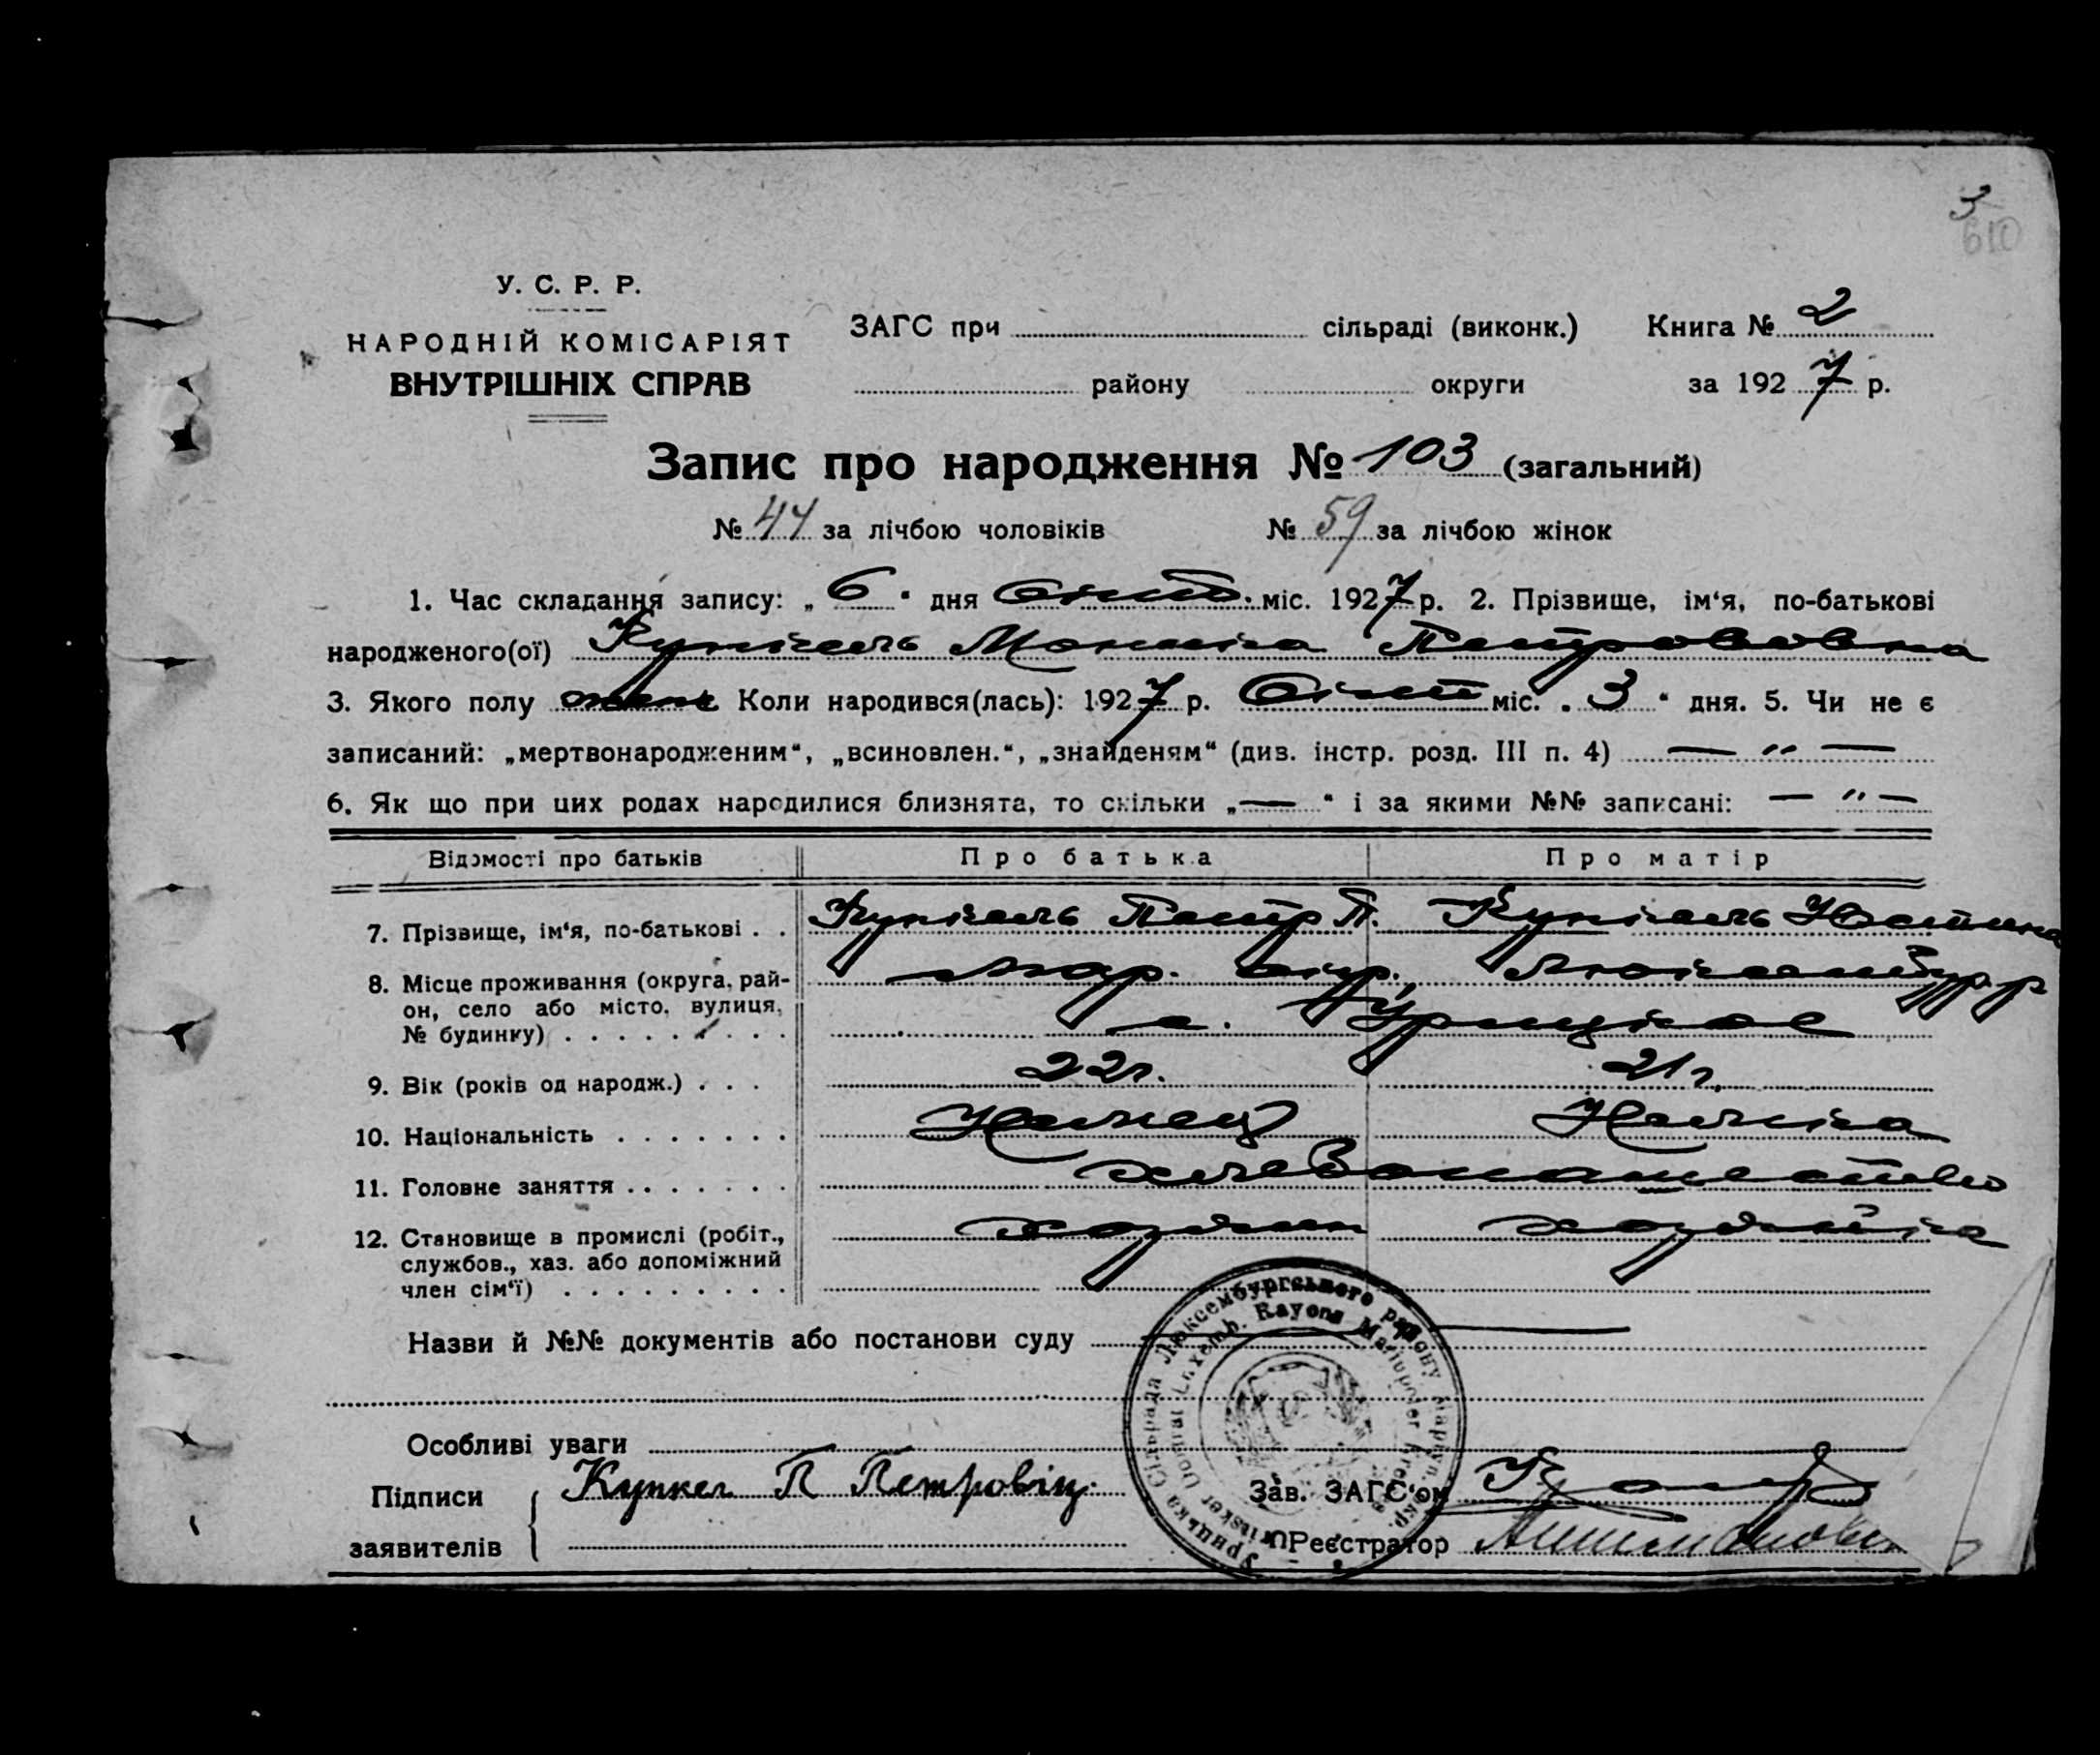 3
610
У. С. Р. Р.
НАРОДНІЙ КОМІСАРІЯТ
ВНУТРІШНІХ СПРАВ
ЗАГС при сільраді (виконк.) Книга № 2
району округи за 1927 р.
Запис про народження № 103 (загальний)
№ 44 за лічбою чоловіків № 59 за лічбою жінок
1. Час складання запису: „6“ дня міс. 1927 р. 2. Прізвище, ім‘я, по-батькові
народженого(ої) Кункель Моника Петрововна
3. Якого полу жен Коли народився(лась): 1927 р. міс. „3“ дня. 5. Чи не є
записаний: „мертвонародженим“, „всиновлен.“, „знайденям“ (див. інстр. розд. III п. 4) — „ —
6. Як що при цих родах народилися близнята, то скільки „—“ і за якими №№ записані: — „ —
Відомості про батьків Про батька Про матір
7. Прізвище, ім‘я, по-батькові . . Кункель Петр П. Кункель
8. Місце проживання (округа, рай- Мар. окр. Люксембур. р
он, село або місто, вулиця, с. Урицкое
№ будинку) . . . . . . . . .
9. Вік (років од народж.) . . . 22г. 21г.
10. Національність . . . . . . . Немец Немка
11. Головне заняття . . . . . . . хлебопашество
12. Становище в промислі (робіт., хозяин хозяйка
службов., хаз. або допоміжний
член сім‘ї) . . . . . . . . .
Назви й №№ документів або постанови суду
Особливі уваги
Підписи Кункел П Петровіч Зав. ЗАГС‘ом
заявителів Реєстратор
Урицька Сільрада Люксембургського району Маріуп. окр.
Luxemb. Rayons Mariupoler Kreises